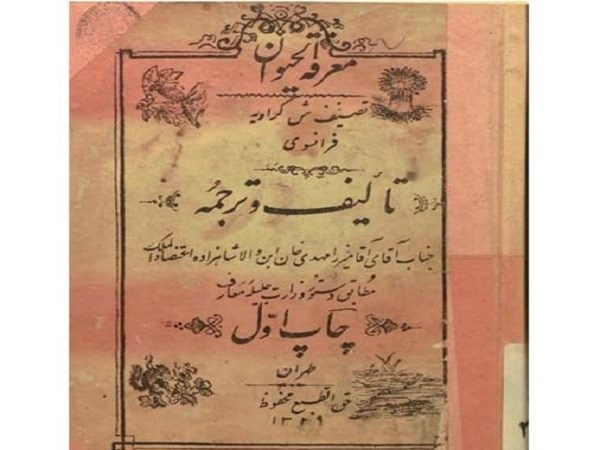 معرفة الحیوان
تصنیف ش گراویه
فرانسوی
تألیف و ترجمه
جناب آقای آقا میرزا مهدی خان ابن والا شاهزاده اعتضاد الملک
مطابق دستور وزارت جلیله معارف
چاپ اوّل
طهران
حق الطبع محفوظ